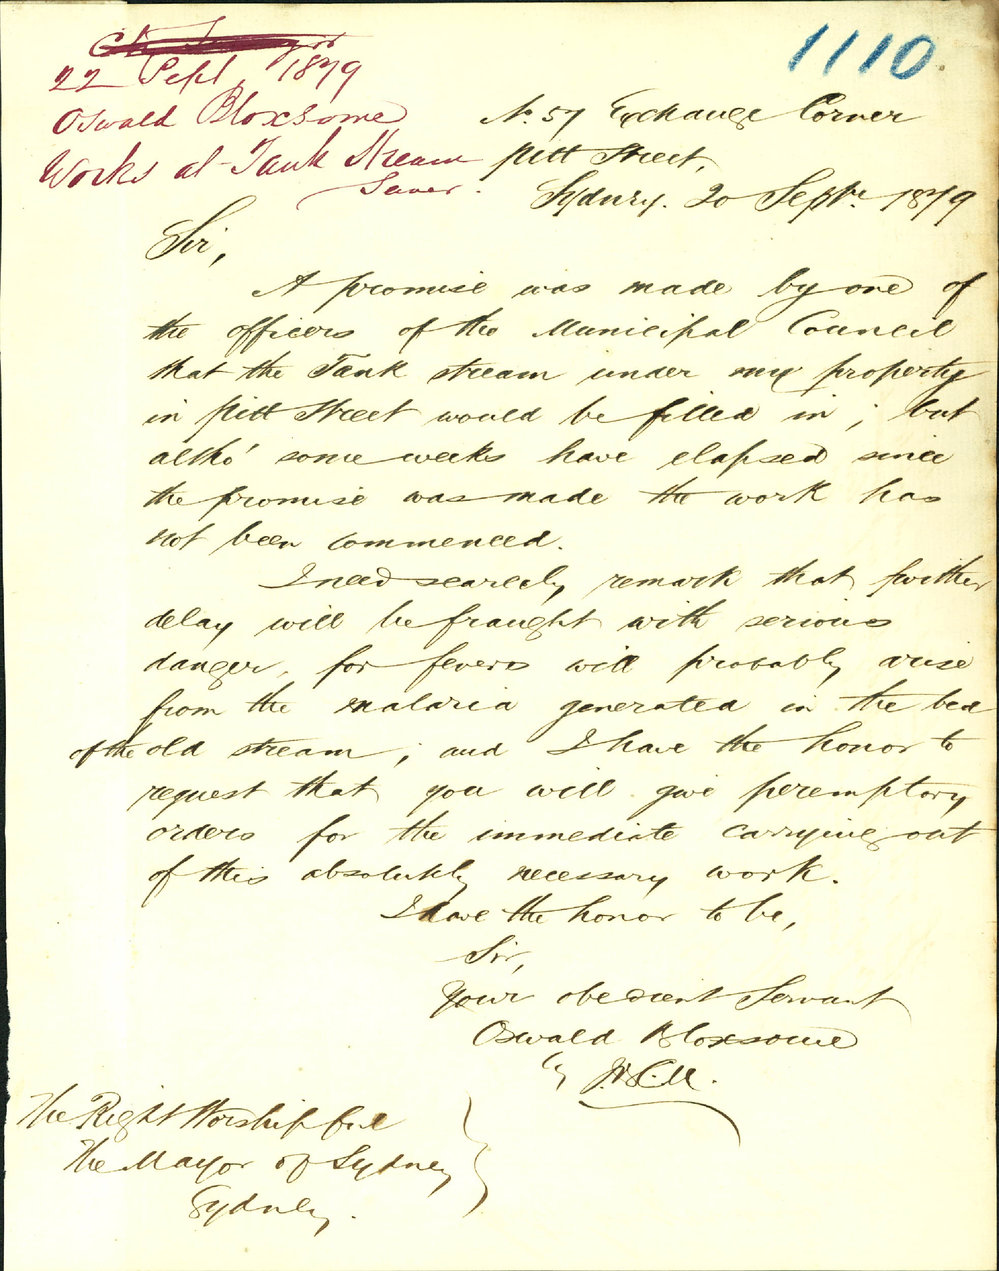 22 Sept. 1879
Oswald Bloxsome
Works at Tank Stream
Sewer.
1110.
No. 57 Exchange Corner
Pitt Street,
Sydney. 20 Septr. 1879
Sir,
A promise was made by one of
the officers of the Municipal Council
that the Tank stream under my property
in Pitt Street would be filled in; but
altho' some weeks have elapsed since
the promise was made the work has
not been commenced.
I need scarcely remark that further
delay will be fraught with serious
danger, for fevers will probably arise
from the malaria generated in the bed
of the old stream; and I have the honor to
request that you will give peremptory
orders for the immediate carrying out
of this absolutely necessary work.
I have the honor to be,
Sir,
Your obedient Servant
Oswald Bloxsome
The Right Worshipful
The Mayor of Sydney
Sydney.